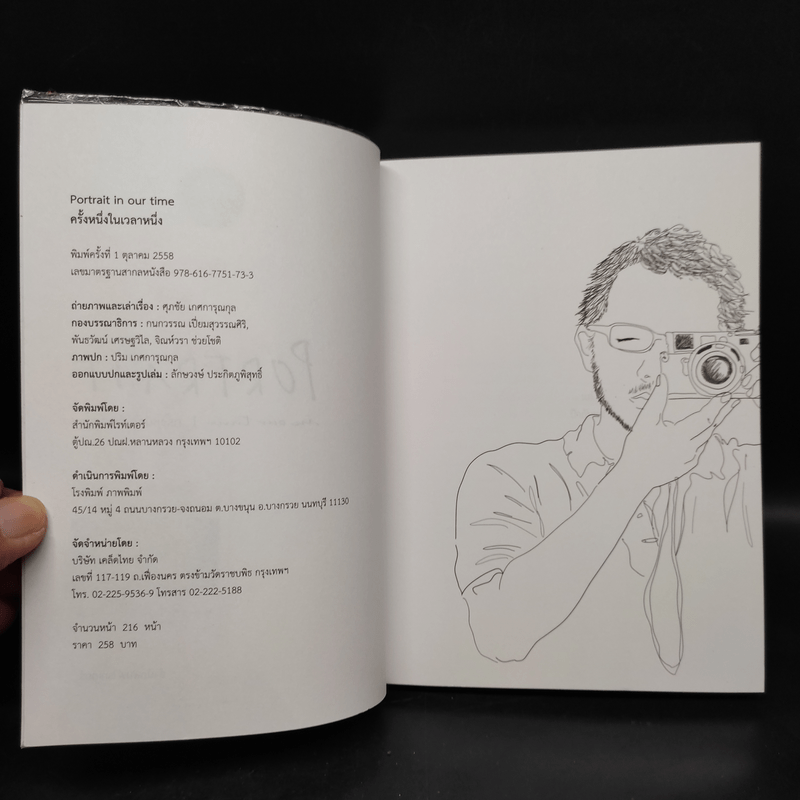 Portrait in our time
ครั้งหนึ่งในเวลาหนึ่ง
พิมพ์ครั้งที่ 1 ตุลาคม 2558
เลขมาตรฐานสากลหนังสือ 978-616-7751-73-3
ถ่ายภาพและเล่าเรื่อง : ศุภชัย เกศการุณกุล
กองบรรณาธิการ : กนกวรรณ เปี่ยมสุวรรณศิริ,
พันธวัฒน์ เศรษฐวิไล, จิณห์วรา ช่วยโชติ
ภาพปก : ปริม เกศการุณกุล
ออกแบบปกและรูปเล่ม : ลักษวงษ์ ประกิตภูพิสุทธิ์
จัดพิมพ์โดย :
สำนักพิมพ์ไรท์เตอร์
ตู้ปณ.26 ปณฝ.หลานหลวง กรุงเทพฯ 10102
ดำเนินการพิมพ์โดย :
โรงพิมพ์ ภาพพิมพ์
45/14 หมู่ 4 ถนนบางกรวย-จงถนอม ต.บางขนุน อ.บางกรวย นนทบุรี 11130
จัดจำหน่ายโดย :
บริษัท เคล็ดไทย จำกัด
เลขที่ 117-119 ถ.เฟื่องนคร ตรงข้ามวัดราชบพิธ กรุงเทพฯ
โทร. 02-225-9536-9 โทรสาร 02-222-5188
จำนวนหน้า 216 หน้า
ราคา 258 บาท